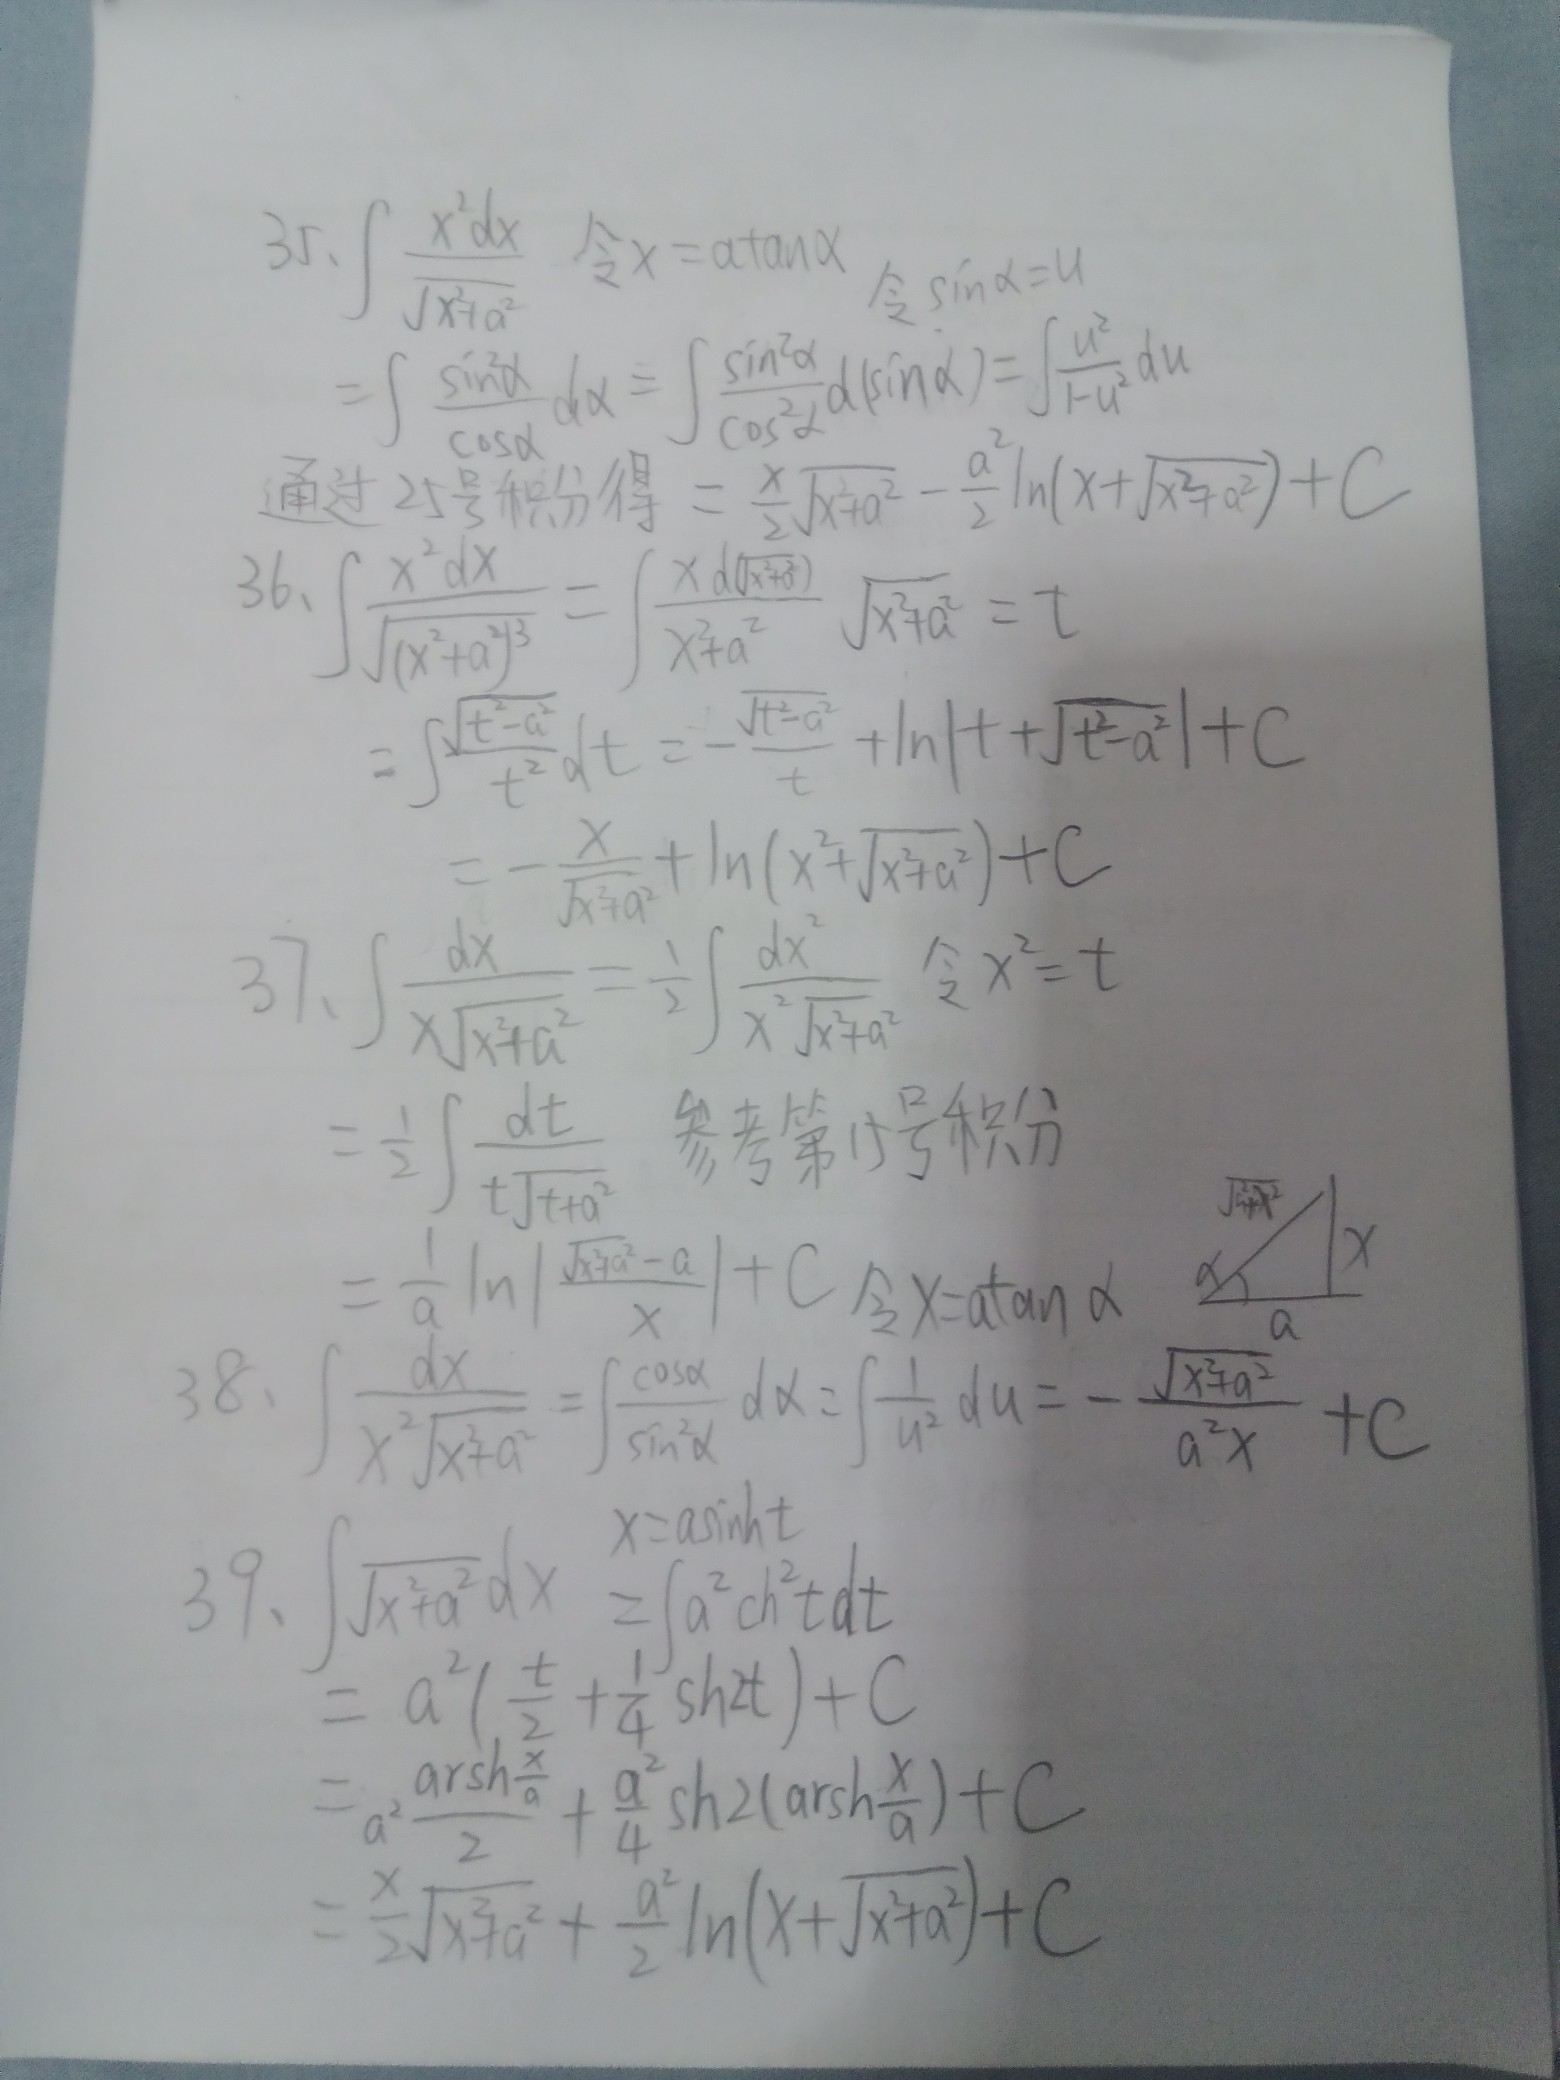 35、∫ x²dx / √(x²+a²) 令x=atanα 令sinα=u
=∫ sin²α / cosα dα = ∫ sin²α / cos²α d(sinα) = ∫ u² / (1-u²) du
通过25号积分得 = x/2 √(x²+a²) - a²/2 ln(x+√(x²+a²))+C
36、∫ x²dx / √((x²+a²)³) = ∫ x d(√(x²+a²)) / (x²+a²) √(x²+a²) = t
=∫ √(t²-a²) / t² dt = - √(t²-a²) / t + ln|t+√(t²-a²)|+C
= - x / √(x²+a²) + ln(x²+√(x²+a²))+C
37、∫ dx / (x√(x²+a²)) = 1/2 ∫ dx² / (x²√(x²+a²)) 令x²=t
= 1/2 ∫ dt / (t√(t+a²)) 参考第15号积分
= 1/a ln| (√(x²+a²)-a) / x |+C 令x=atanα
α a x
38、∫ dx / (x²√(x²+a²)) = ∫ cosα / sin²α dα = ∫ 1/u² du = - √(x²+a²) / (a²x) +C
39、∫√(x²+a²)dx x=asinht =∫a²ch²tdt
= a²(t/2 + 1/4 sh2t)+C
= a² arsh x/a / 2 + a²/4 sh2(arsh x/a)+C
= x/2 √(x²+a²) + a²/2 ln(x+√(x²+a²))+C